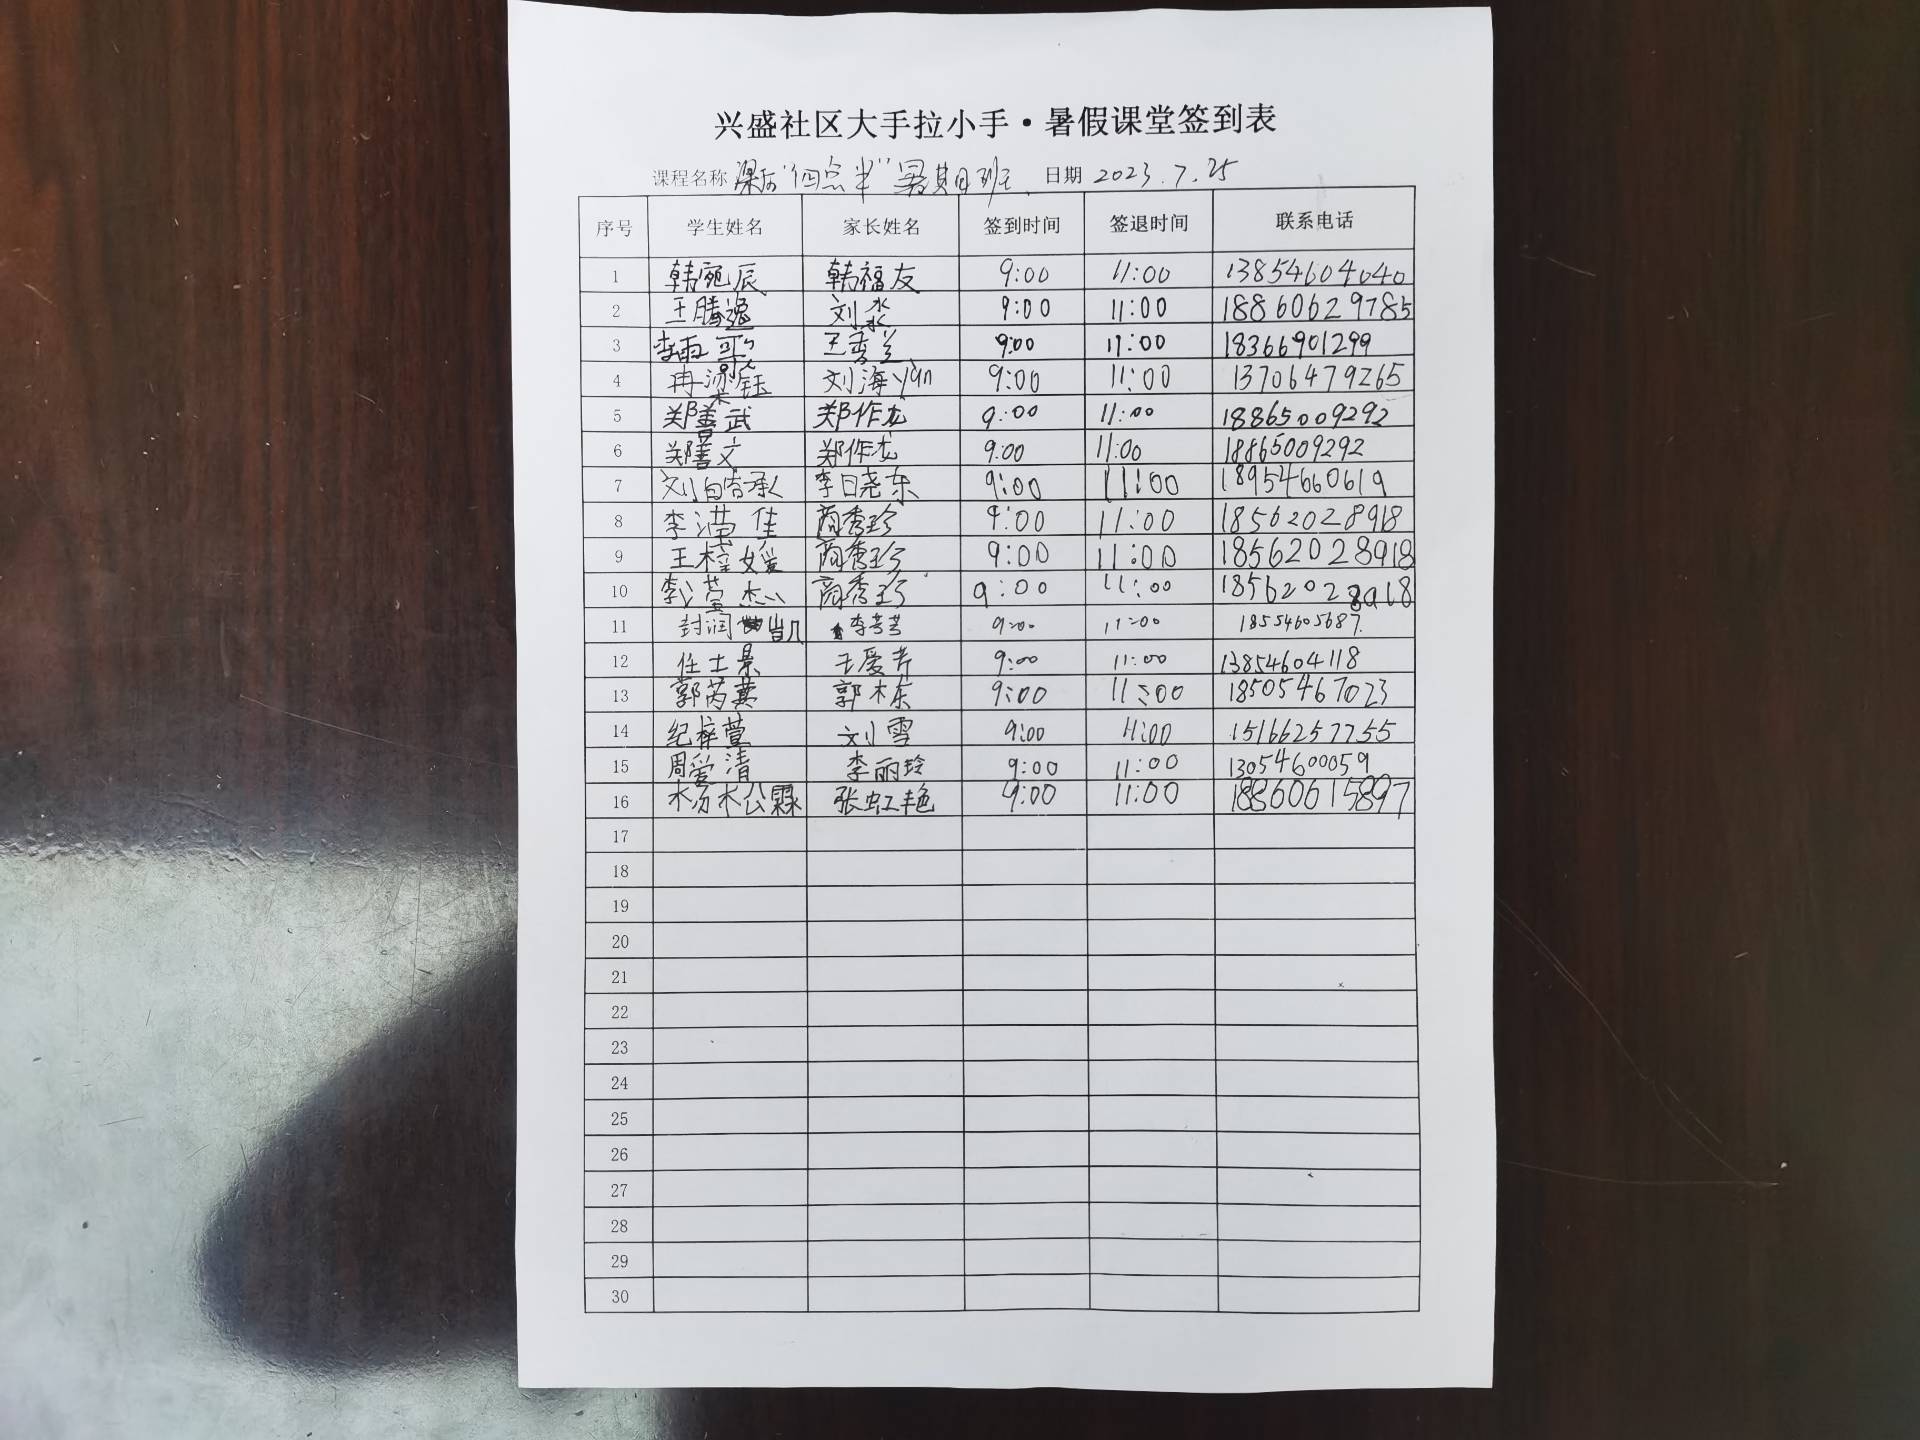 兴盛社区大手拉小手·暑假课堂签到表
课程名称 课后"四点半"暑期班 日期 2023.7.25
序号 学生姓名 家长姓名 签到时间 签退时间 联系电话
1 韩宛辰 韩福友 9:00 11:00 13854604040
2 王腾逸 刘淼 9:00 11:00 18860629785
3 李雨歌 王秀兰 9:00 11:00 18366901299
4 冉梁钰 刘海yan 9:00 11:00 13706479265
5 郑善武 郑作龙 9:00 11:00 18865009292
6 郑善文 郑作龙 9:00 11:00 18865009292
7 刘 承 李日尧东 9:00 11:00 18954660619
8 李滢佳 商秀珍 9:00 11:00 18562028918
9 王梓媛 商秀珍 9:00 11:00 18562028918
10 李 商秀珍 9:00 11:00 18562028918
11 封润凯 李芳芳 9:00 11:00 18554605687
12 任士景 王爱芹 9:00 11:00 13854604118
13 郭芮萁 郭木东 9:00 11:00 18505467023
14 纪梓萱 刘雪 9:00 11:00 15166257755
15 周爱清 李丽玲 9:00 11:00 13054600059
16 杨松霖 张虹艳 9:00 11:00 18860615897
17
18
19
20
21
22
23
24
25
26
27
28
29
30